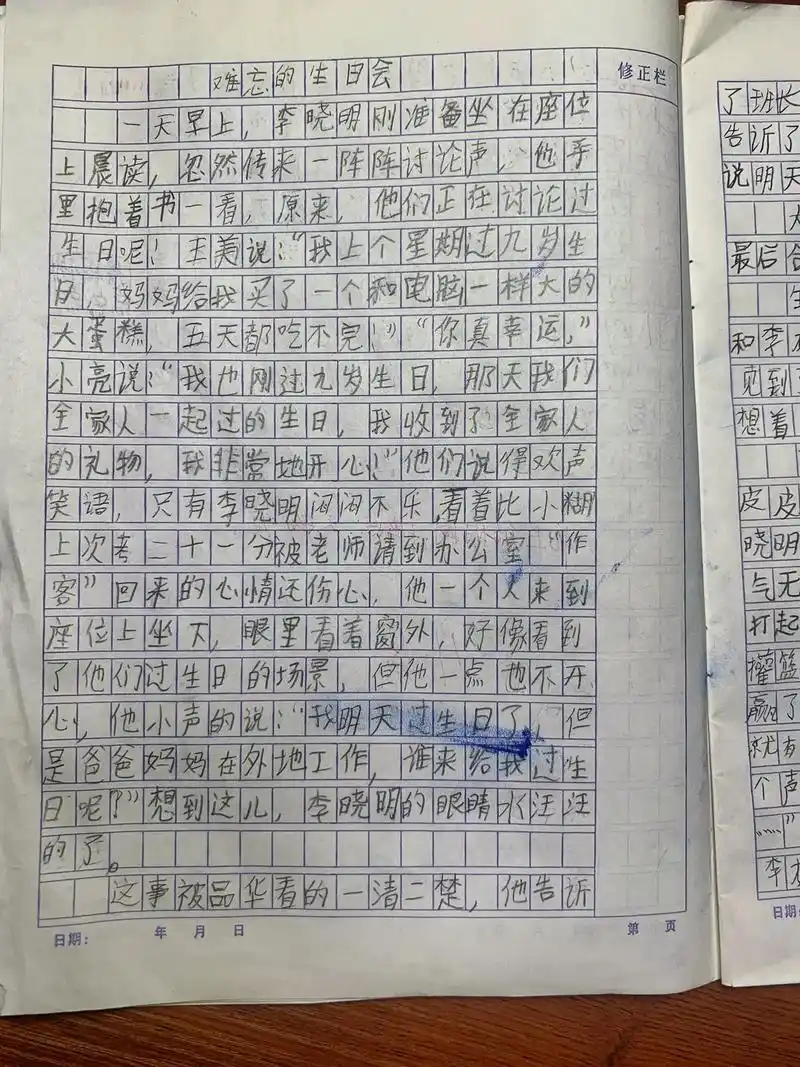 难忘的生日会
修正栏
一天早上，李晓明刚准备坐在座位
上晨读，忽然传来一阵阵讨论声，他手
里抱着书一看，原来，他们正在讨论过
生日呢！王美说：“我上个星期过九岁生
日，妈妈给我买了一个和电脑一样大的
大蛋糕，五天都吃不完！”“你真幸运，”
小亮说：“我也刚过九岁生日，那天我们
全家人一起过的生日，我收到了全家人
的礼物，我非常地开心！”他们说得欢声
笑语，只有李晓明闷闷不乐，看着比小糊
上次考二十一分被老师请到办公室“作
客”回来的心情还伤心，他一个人来到
座位上坐下，眼里看着窗外，好像看到
了他们过生日的场景，但他一点也不开
心，他小声的说：“我明天过生日了，但
是爸爸妈妈在外地工作，谁来给我过生
日呢？”想到这儿，李晓明的眼睛水汪汪
的了。
这事被品华看的一清二楚，他告诉
日期： 年 月 日
第 页
了班长
告诉了
说明天
最后合
和李
见到了
想着
皮皮
晓明
气无
打起
篮
赢了
就有
个声
……”
李
日期：